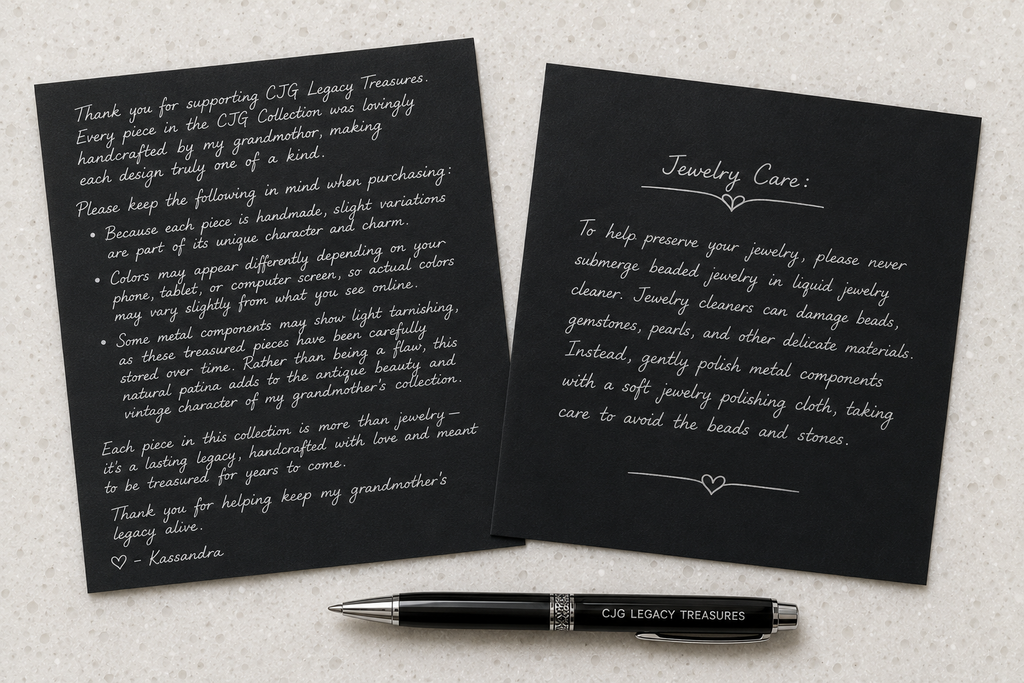 Thank you for supporting CJG Legacy Treasures.
Every piece in the CJG Collection was lovingly
handcrafted by my grandmothor, making
each design truly one of a kind.
Please keep the following in mind when purchasing:
• Because each piece is handmade, slight variations
are part of its unique character and charm.
• Colors may appear differently depending on your
phone, tablet, or computer screen, so actual colors
may vary slightly from what you see online.
• Some metal components may show light tarnishing,
as these treasured pieces have been carefully
stored over time. Rather than being a flaw, this
natural patina adds to the antique beauty and
vintage character of my grandmother's collection.
Each piece in this collection is more than jewelry—
it's a lasting legacy, handcrafted with love and meant
to be treasured for years to come.
Thank you for helping keep my grandmother's
legacy alive.
♡ – Kassandra
Jewelry Care:
To help preserve your jewelry, please never
submerge beaded jewelry in liquid jewelry
cleaner. Jewelry cleaners can damage beads,
gemstones, pearls, and other delicate materials.
Instead, gently polish metal components
with a soft jewelry polishing cloth, taking
care to avoid the beads and stones.
CJG LEGACY TREASURES